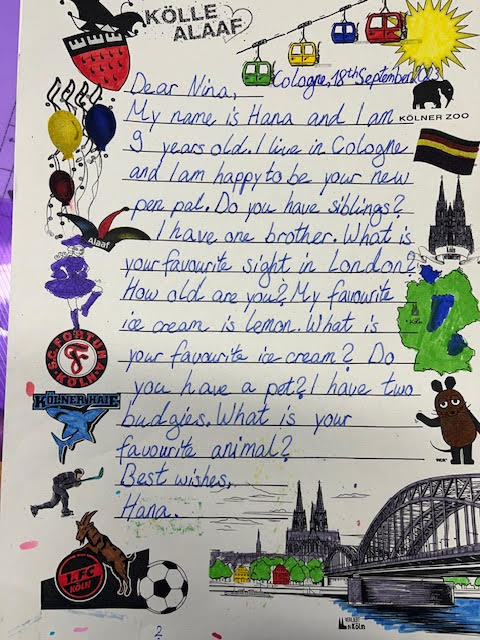 KÖLLE
ALAAF
Dear Nina,
Cologne, 18th September 2023
My name is Hana and I am
KÖLNER ZOO
9 years old. I live in Cologne
and I am happy to be your new
pen pal. Do you have siblings?
Alaaf
I have one brother. What is
Köln
your favourite sight in London?
How old are you? My favourite
Köln
ice cream is lemon. What is
S.C. FORTUNA KÖLN
F
your favourite ice cream? Do
you have a pet? I have two
KÖLNER HAIE
budgies. What is your
favourite animal?
Best wishes,
Hana.
1. FC
KÖLN
VERLIEBT
in Köln
2